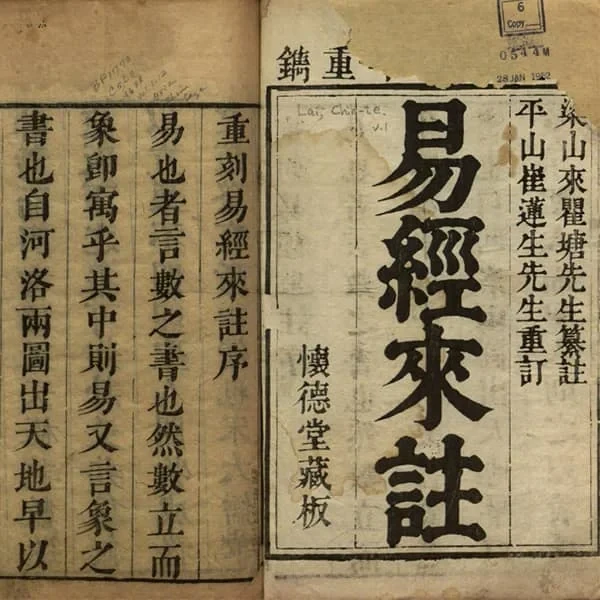 6
Copy
28 JAN 1982
重鐫
梁山來瞿塘先生纂註
平山崔蓮生先生重訂
Lai, Chih-te.
v.1
易經來註
懷德堂藏板
重刻易經來註序
易也者言數之書也然數立而
象卽寓乎其中則易又言象之
書也自河洛兩圖出天地早以